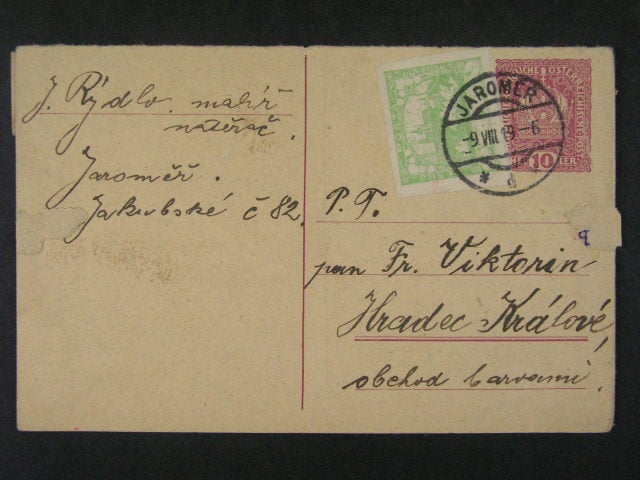 J. Rýdlo. malíř
natěrač.
Jaroměř.
Jakubské č 82.
JAROMĚŘ
-9.VIII.19-6
* d *
10
P. T.
pan Fr. Viktorin
Hradec Králové,
obchod barvami.